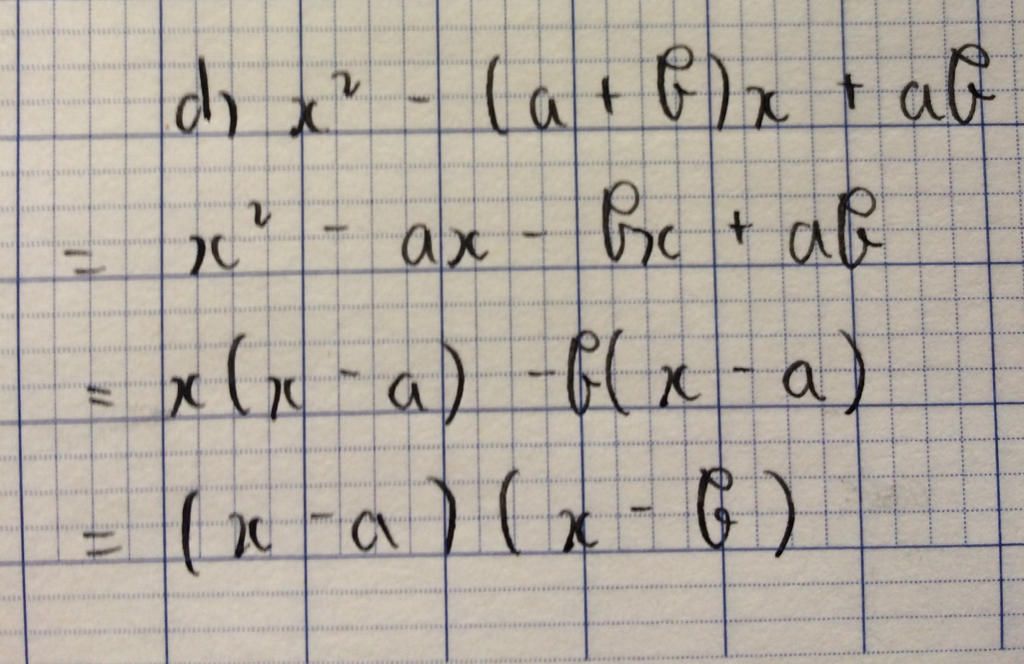 d) x² - (a + b)x + ab
= x² - ax - bx + ab
= x(x - a) - b(x - a)
= (x - a)(x - b)